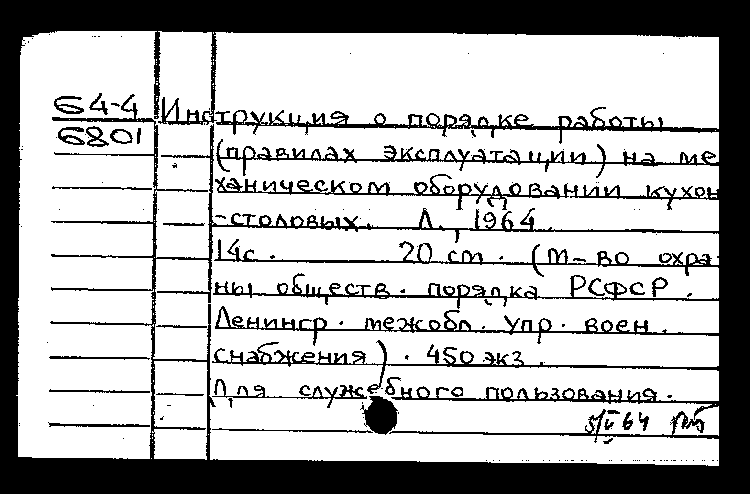 64-4 Инструкция о порядке работы
6801 (правилах эксплуатации) на ме
ханическом оборудовании кухон
-столовых. Л., 1964.
14с. 20 см. (М-во охра
ны обществ. порядка РСФСР.
Ленингр. межобл. упр. воен.
снабжения). 450 экз.
Для служебного пользования.